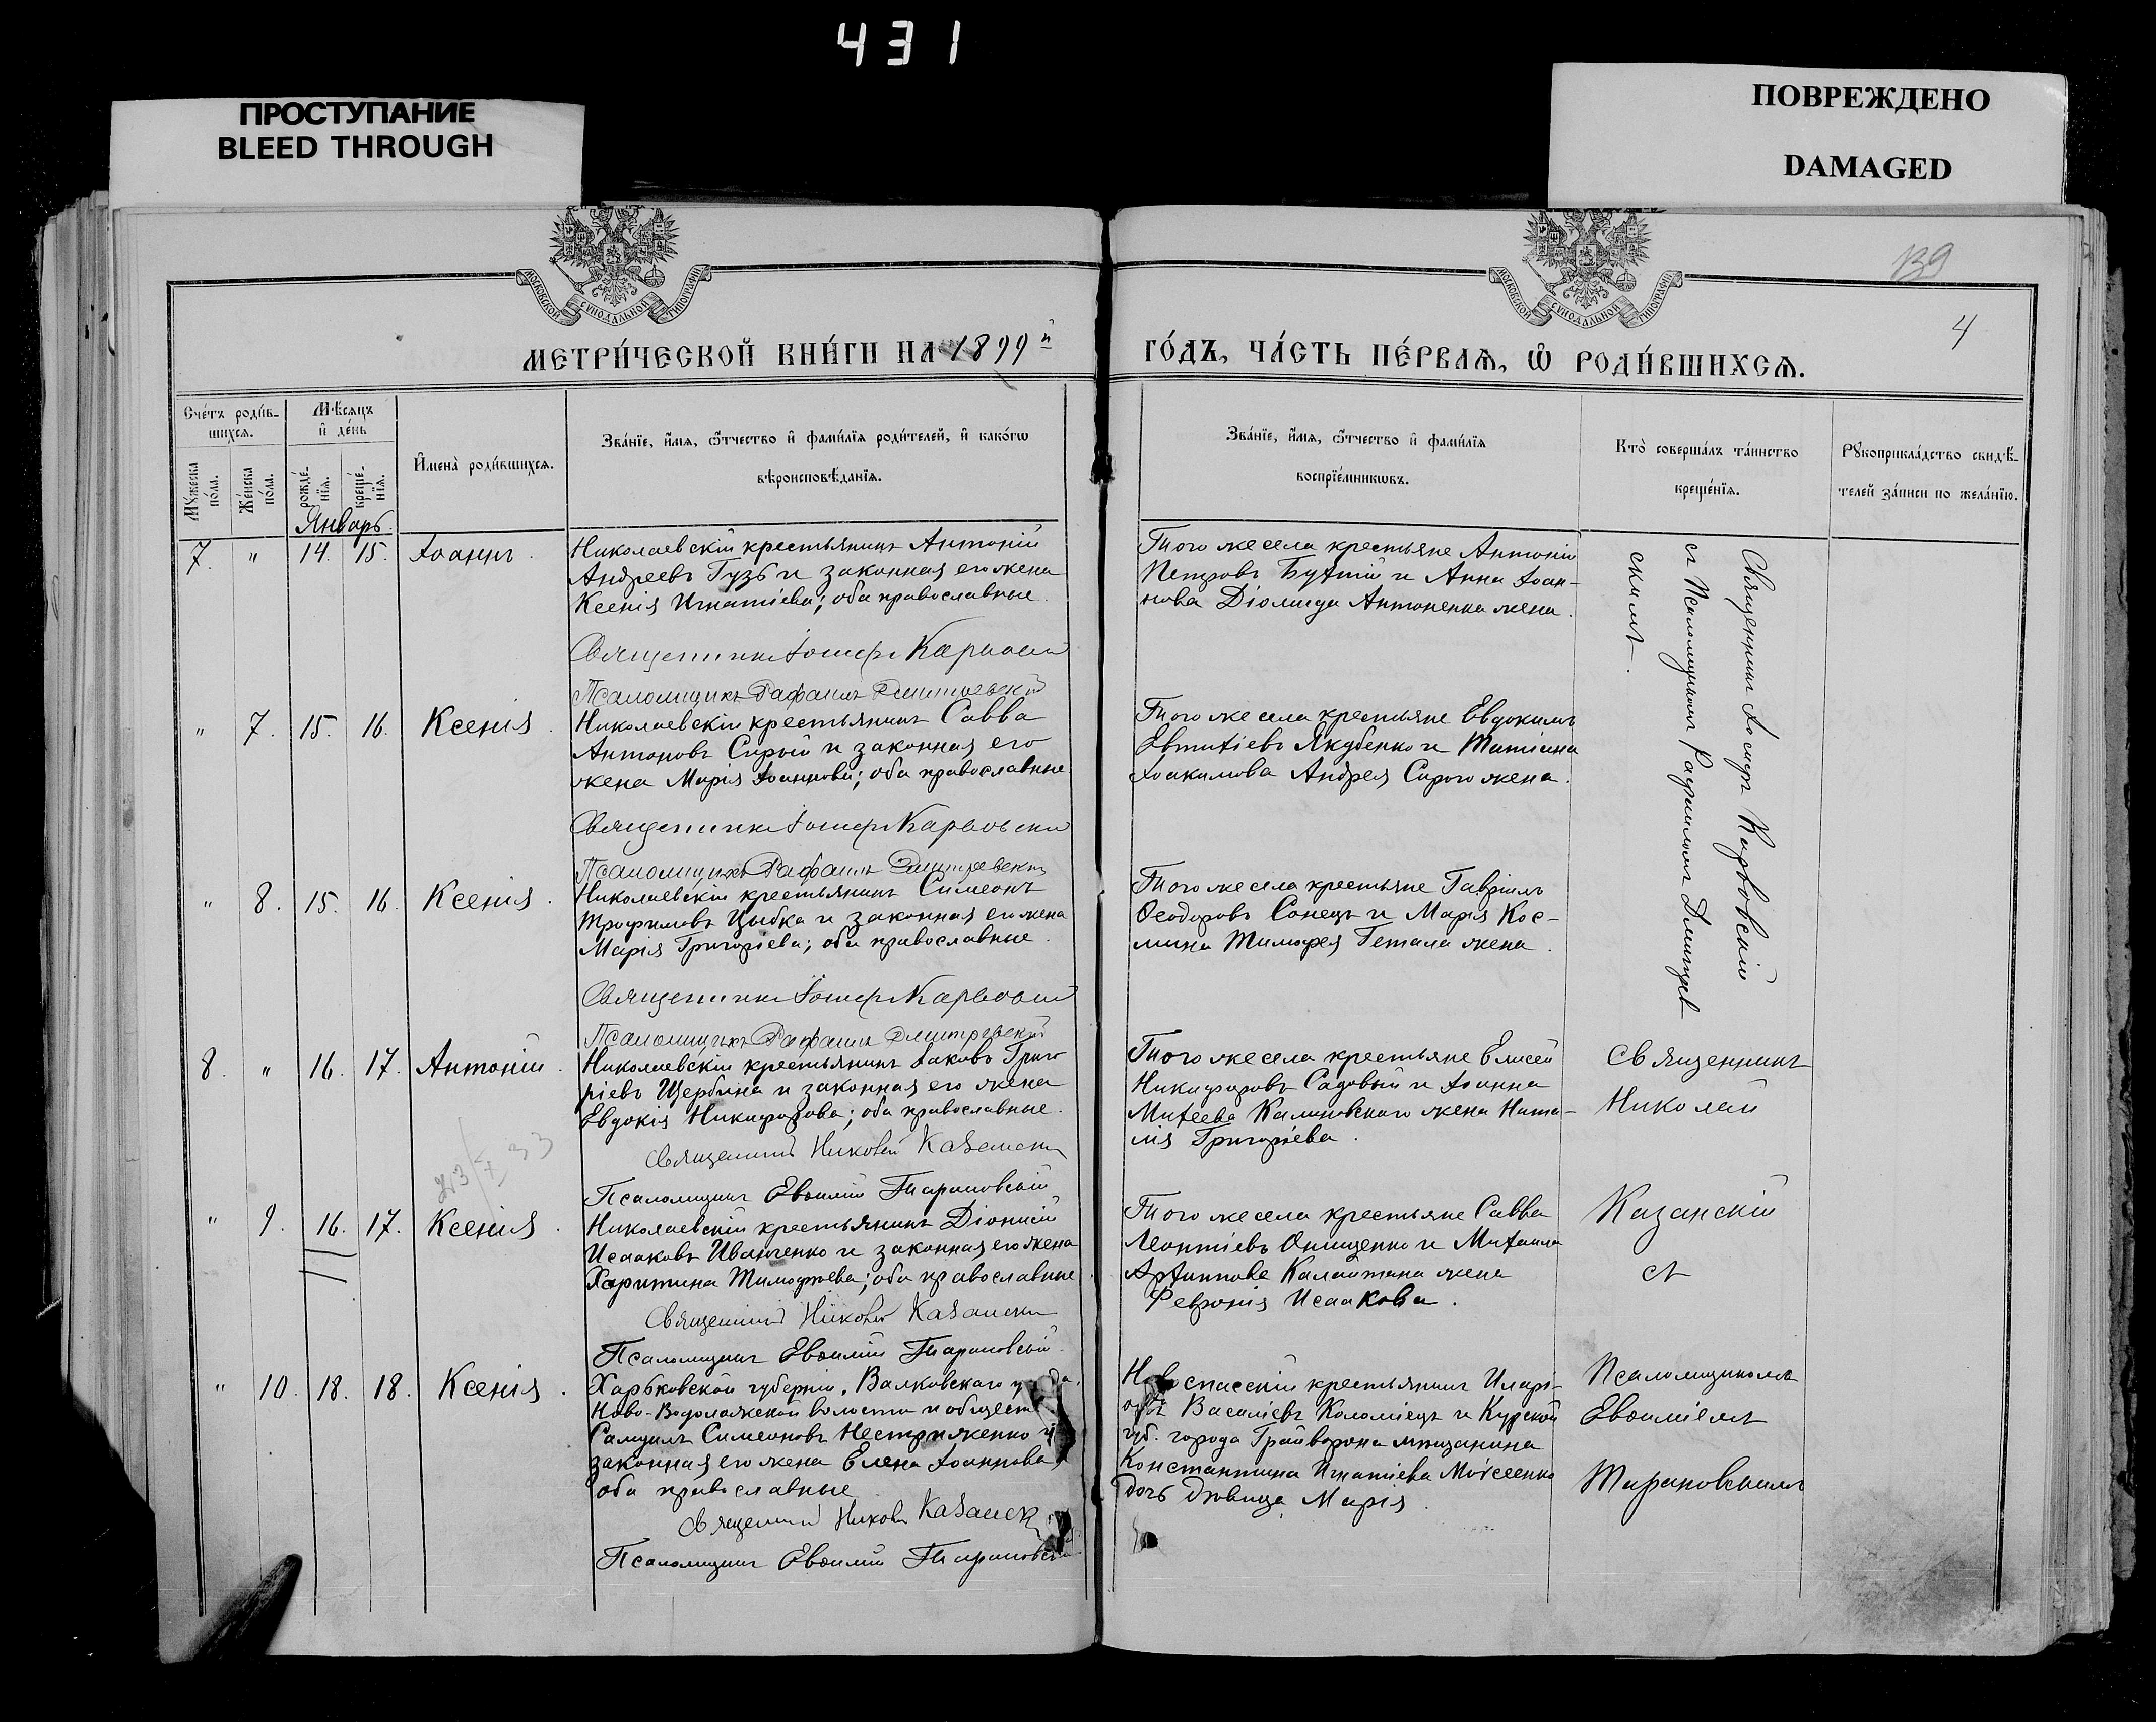 431
ПРОСТУПАНИЕ
BLEED THROUGH
ПОВРЕЖДЕНО
DAMAGED
139
4
МОСКОВСКОЙ СУНОДАЛЬНОЙ ТИПОГРАФІИ
МОСКОВСКОЙ СУНОДАЛЬНОЙ ТИПОГРАФІИ
МЕТРИ́ЧЕСКОЙ КНИ́ГИ НА 1899й
ГО́ДЪ, ЧА́СТЬ ПЕ́РВАѦ, Ѡ РОДИ́ВШИХСѦ.
Сче́тъ роди́в-
шихсѧ.
Мѣ́сѧцъ
и де́нь
Мꙋ́жеска по́ла.
Же́нска по́ла.
рожде́-нїѧ.
креще́-нїѧ.
Имена̀ роди́вшихсѧ.
Зва́нїе, и́мѧ, ѻ́тчество и фами́лїѧ роди́телей, и како́гѡ
вѣроисповѣ́данїѧ.
Зва́нїе, и́мѧ, ѻ́тчество и фами́лїѧ
воспрїе́мникѡвъ.
Кто̀ соверша́лъ та́инство
креще́нїѧ.
Рꙋкоприкла́дство свидѣ́-
телей за́писи по жела́нїю.
Январь.
7. " 14. 15. Іоаннъ.
Николаевскій крестьянинъ Антоній
Андреевъ Гузь и законная его жена
Ксенія Игнатіева; оба православные.
Священникъ Іосифъ Карповскій
Псаломщикъ Рафаилъ Дмитревскій
Того же села крестьяне Антоній
Петровъ и Анна Іоан-
нова Діомида Антоненка жена.
Священникъ Іосифъ Карповскій
съ Псаломщикомъ Рафаиломъ Дмитрев
скимъ.
" 7. 15. 16. Ксенія.
Николаевскій крестьянинъ Савва
Антоновъ Сирый и законная его
жена Марія Іоаннова; оба православные.
Священникъ Іосифъ Карповскій
Псаломщикъ Рафаилъ Дмитревскій
Того же села крестьяне Евдокимъ
Евтихіевъ Якубенко и Татіана
Іоакимова Андрея Сирого жена.
" 8. 15. 16. Ксенія.
Николаевскій крестьянинъ Симеонъ
Трофимовъ Цыбка и законная его жена
Марія Григоріева; оба православные.
Священникъ Іосифъ Карповскій
Псаломщикъ Рафаилъ Дмитревскій
Того же села крестьяне Гавріилъ
Ѳеодоровъ Сонецъ и Марія Кос-
мина Тимоѳея Гетала жена.
8. " 16. 17. Антоній.
Николаевскій крестьянинъ Іаковъ Григо
ріевъ Щербина и законная его жена
Евдокія Никифорова; оба православные.
Священникъ Николай Казанскій
Псаломщикъ Евѳимій Тарановскій
Того же села крестьяне Елисей
Никифоровъ Садовый и Іоанна
Михеева Калиновского жена Ната-
лія Григоріева.
Священникъ
Николай
Казанскій
съ
Псаломщикомъ
Евѳиміемъ
Тарановскимъ
" 9. 16. 17. Ксенія.
Николаевскій крестьянинъ Діонисій
Исааковъ Иванченко и законная его жена
Харитина Тимофеева; оба православные
Священникъ Николай Казанскій
Псаломщикъ Евѳимій Тарановскій
Того же села крестьяне Савва
Леонтіевъ Онищенко и Михаила
Архиппова Калайтана жена
Феѵронія Исаакова.
" 10. 18. 18. Ксенія.
Харьковской губерніи, Валковскаго
Ново-Водолажской волости и общест
Самуилъ Симеоновъ Нестриженко и
законная его жена Елена Іоаннова,
оба православные
Священникъ Николай Казанск
Псаломщикъ Евѳимій Тарановскій
Новоспасскій крестьянинъ Иларі-
онъ Василіевъ Коломіецъ и Курской
губ. города Грайворона мѣщанина
Константина Игнатіева Моѵсеенко
дочь дѣвица Марія.